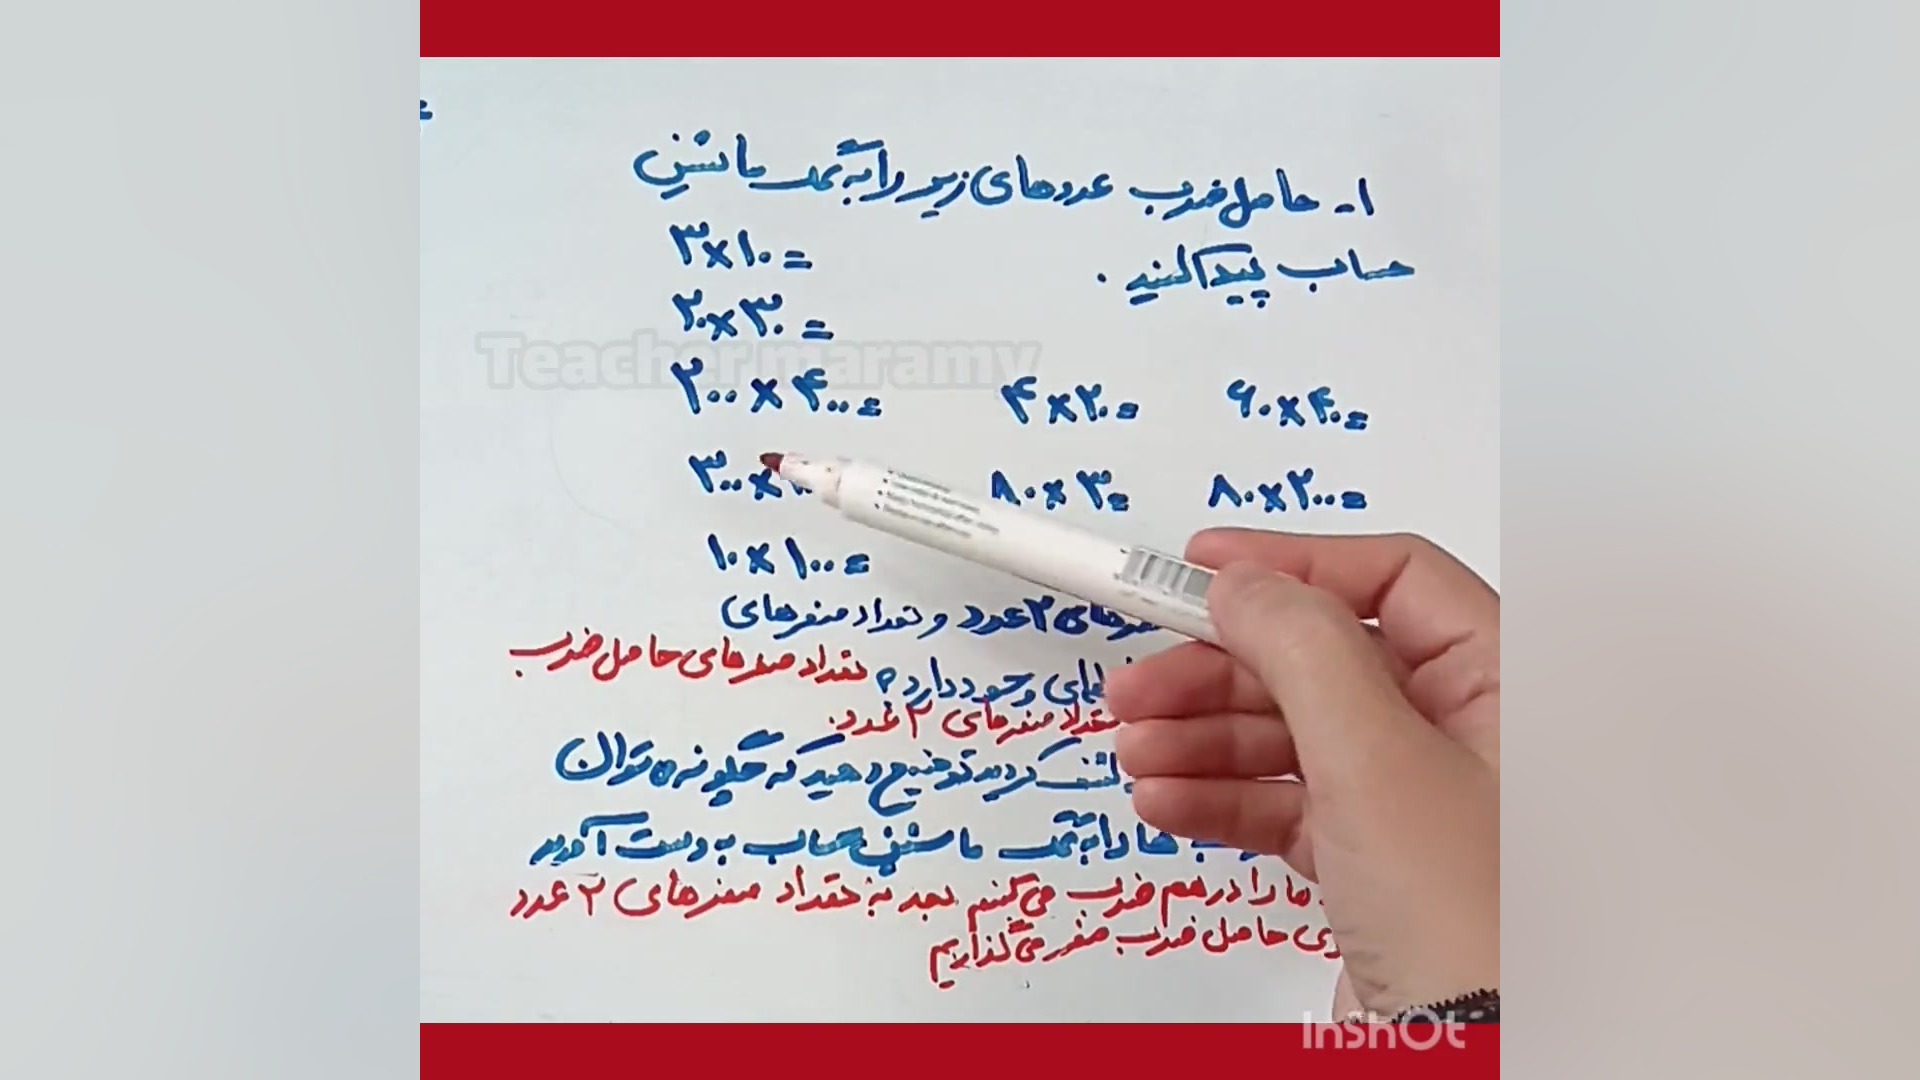 ۱- حاصل ضرب عددهای زیر را به کمک ماشین
حساب پیدا کنید.
۳×۱۰=
۲۰×۳۰=
۲۰۰×۴۰۰= ۴×۲۰= ۶۰×۴۰=
۳۰۰× ۸۰×۳= ۸۰×۲۰۰=
۱۰×۱۰۰=
۲ عدد و تعداد صفرهای
وجود دارد؟ تعداد صفرهای حاصل ضرب
صفرهای ۲ عدد.
کشف کردید توضیح دهید که چگونه می‌توان
ها را به کمک ماشین حساب به دست آورید
را در هم ضرب می‌کنیم بعد به تعداد صفرهای ۲ عدد
حاصل ضرب صفر می‌گذاریم
Teacher maramy
InShOt